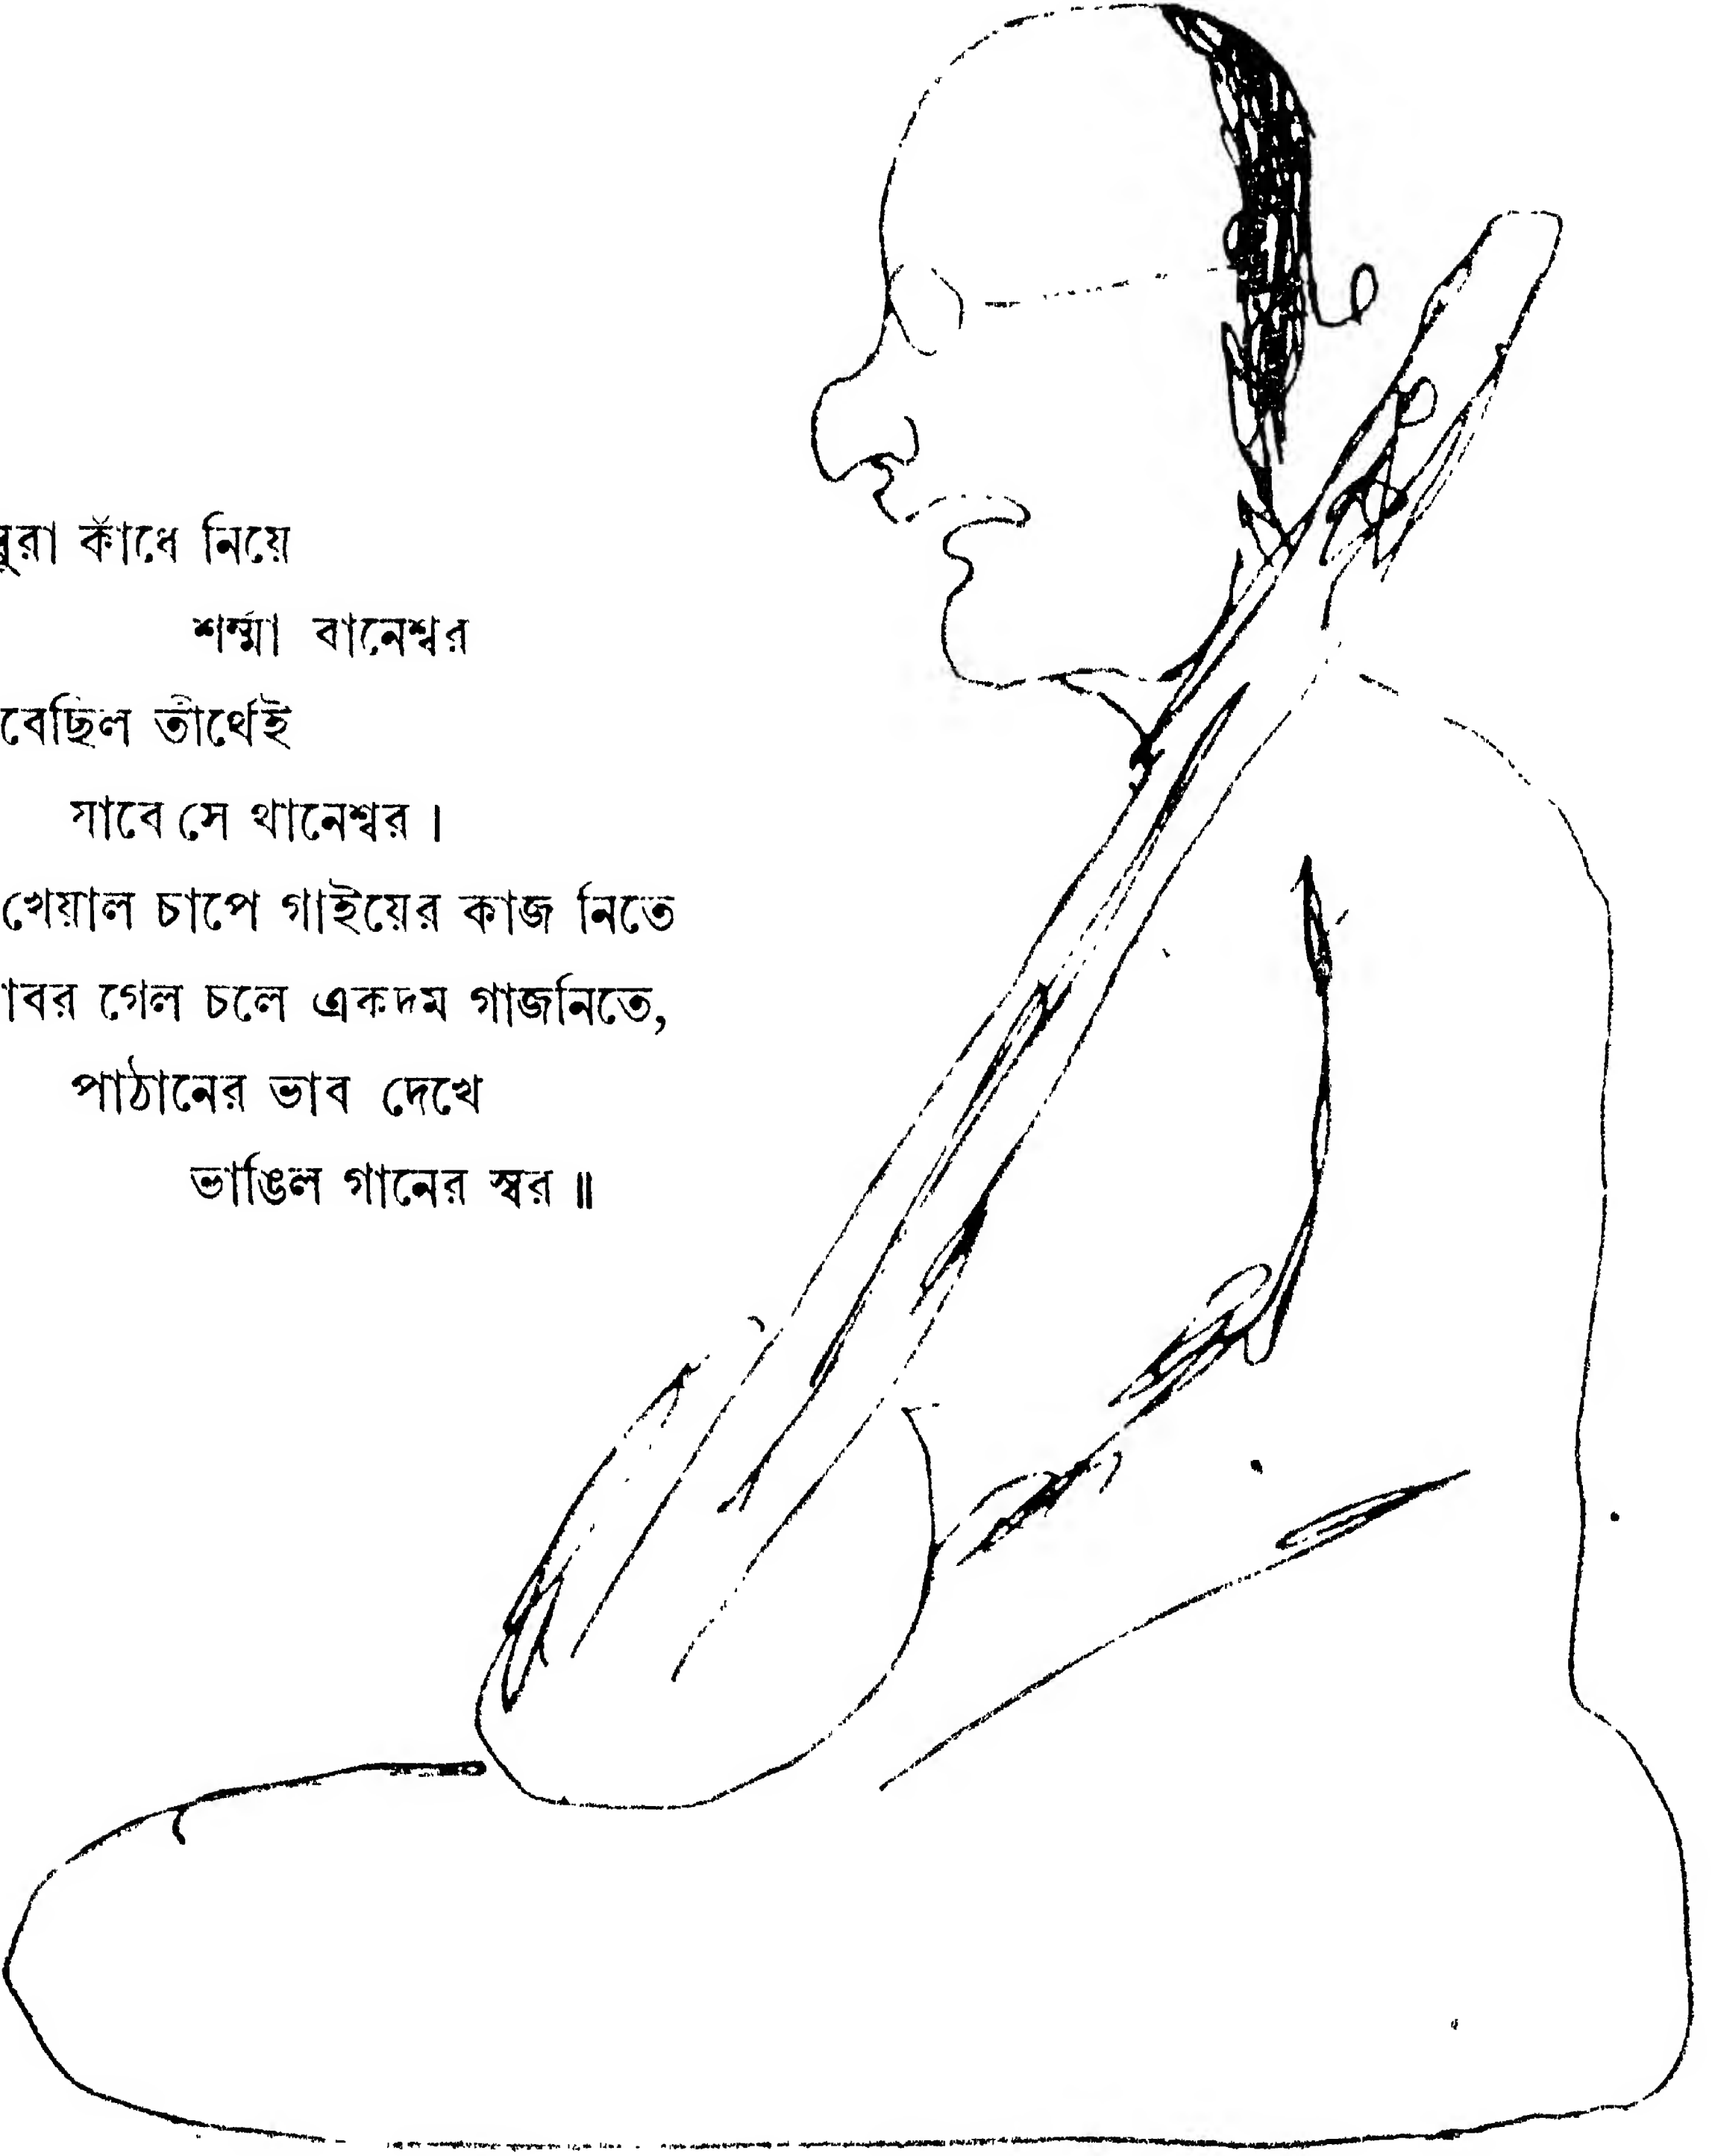 কাঁধে নিয়ে
শর্ম্মা বানেশ্বর
তীর্থেই
যাবে সে থানেশ্বর।
খেয়াল চাপে গাইয়ের কাজ নিতে
গেল চলে একদম গাজনিতে,
পাঠানের ভাব দেখে
ভাঙিল গানের স্বর॥